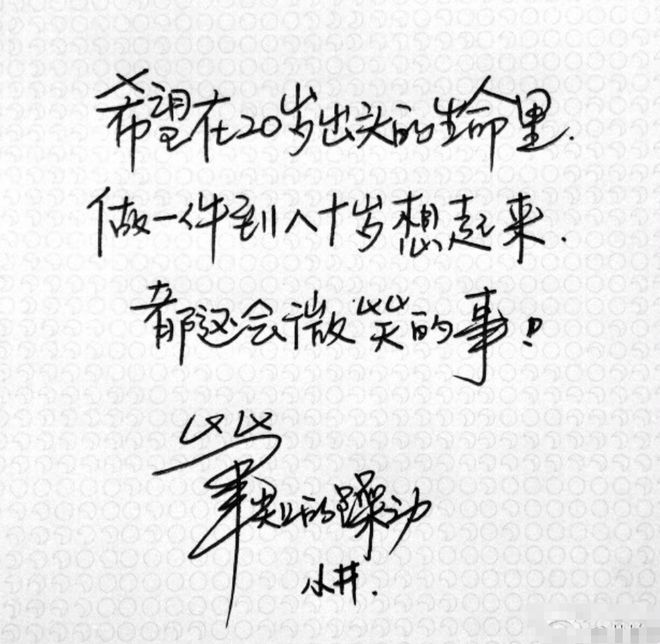 希望在20岁出头的生命里.
做一件到八十岁想起来.
都还会微笑的事!
笔尖上的躁动
小井.